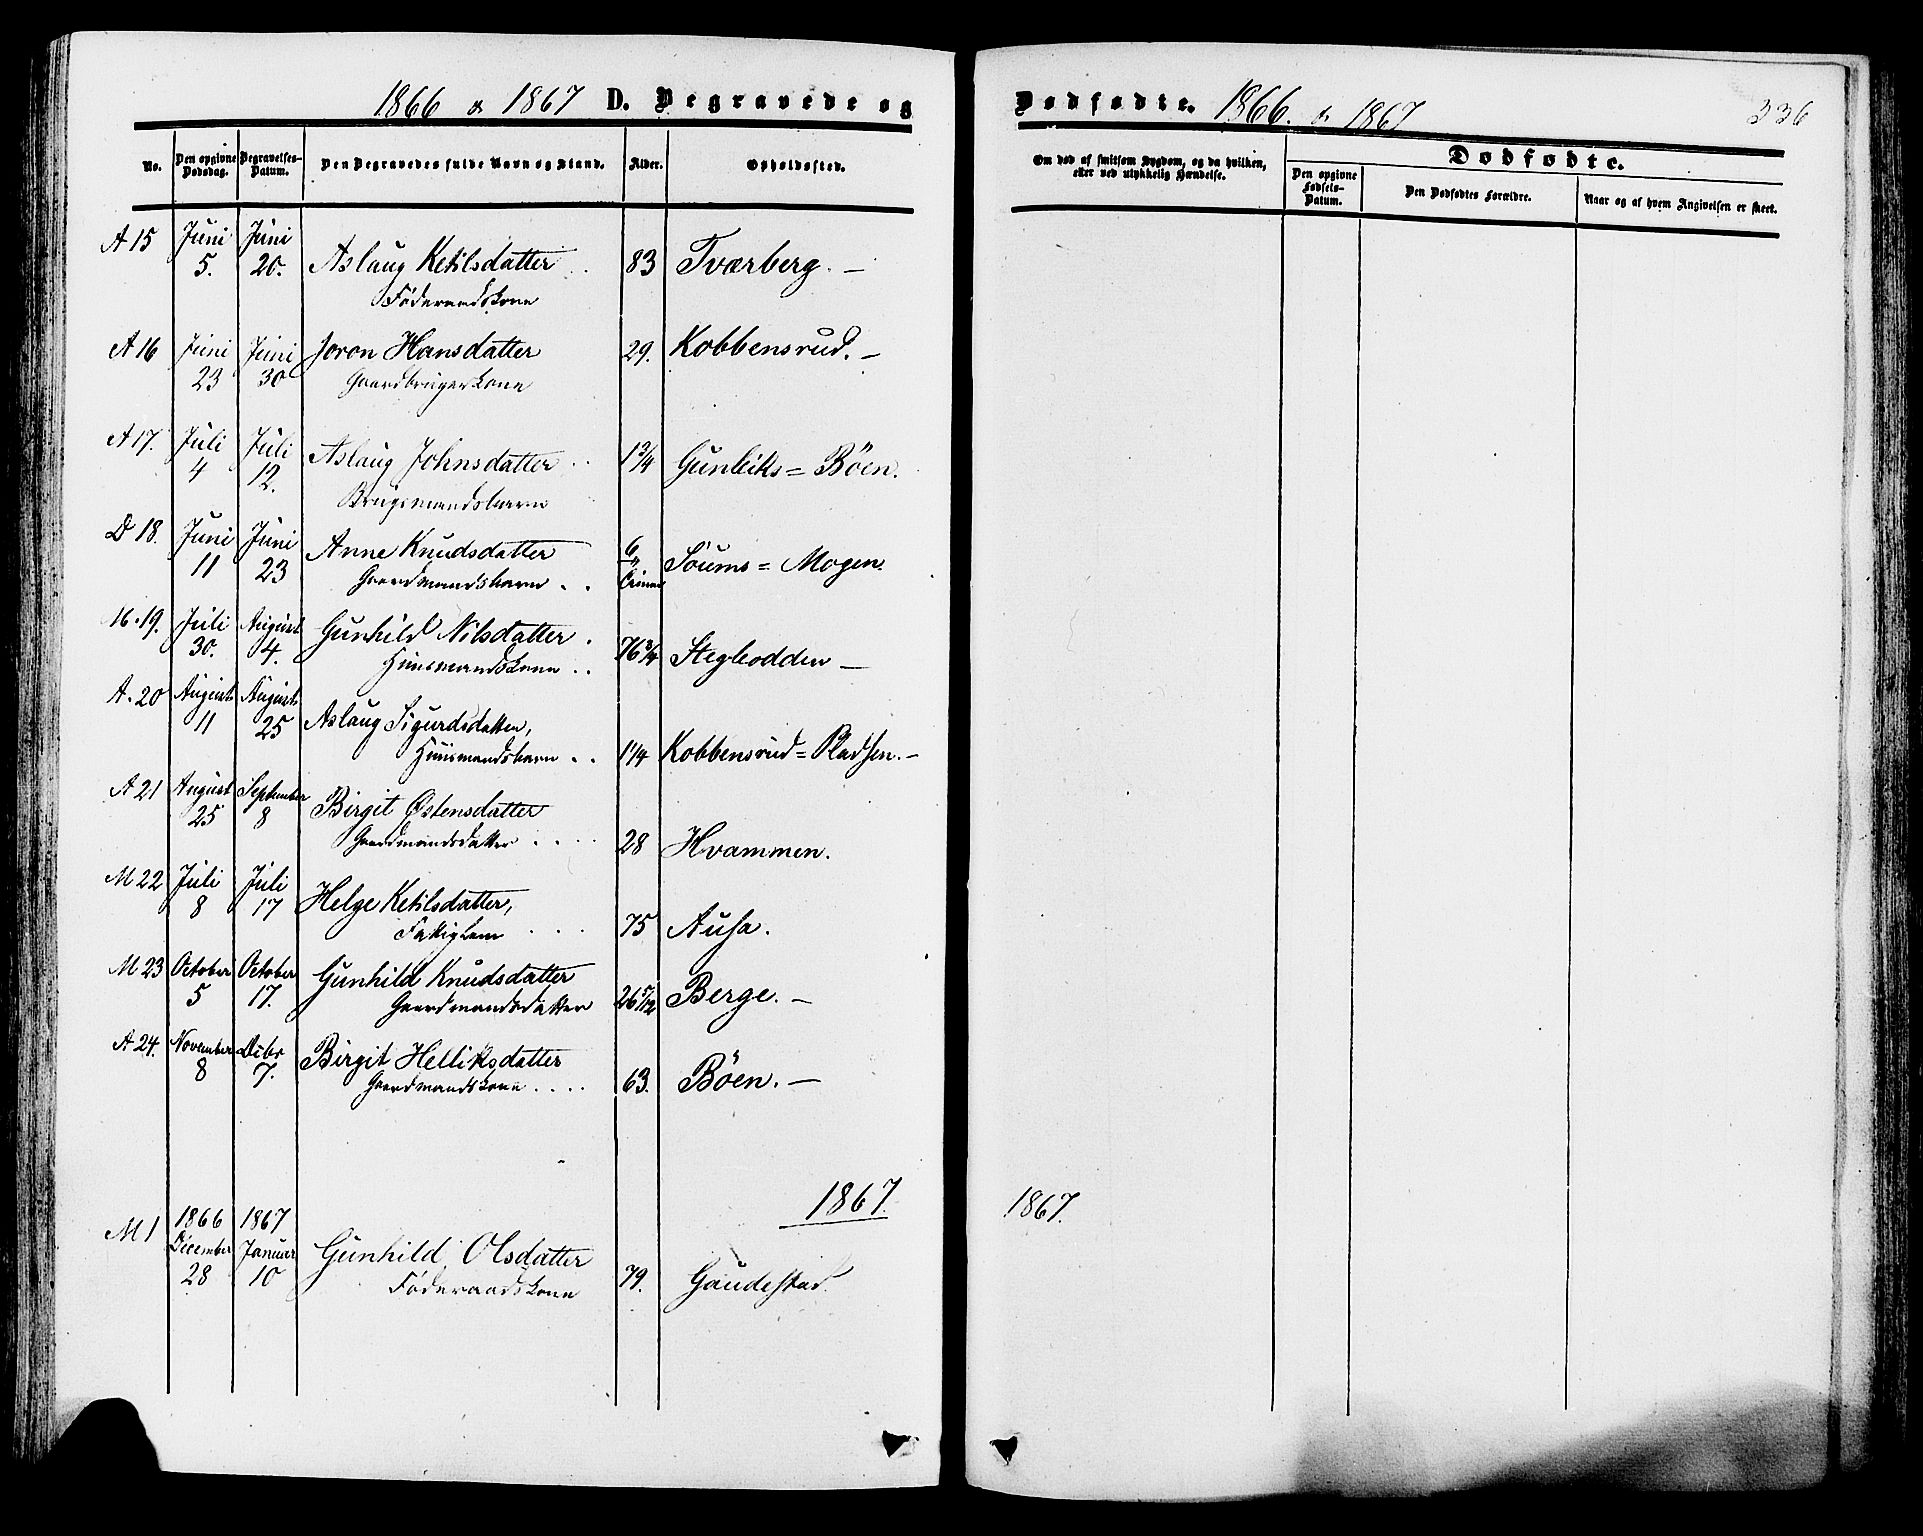 1866 & 1867 D. Begravede og
No. Den opgivne Dødsdag. Begravelses-Datum. Den Begravedes fulde Navn og Stand. Alder. Opholdssted.
A 15 Juni 5. Juni 20. Aslaug Ketilsdatter 83 Tværberg. —
Føderaadskone
A 16 Juni 23 Juni 30 Joron Hansdatter 29. Kobbensrud. —
Gaardbrugerkone
A 17. Juli 4 Juli 12. Aslaug Johnsdatter 1 3/4 Gunleiks = Böen.
Brugsmandsbarn
D 18. Juni 11 Juni 23 Anne Knudsdatter 6 Söums = Mogen.
Gaardmandsbarn
19. Juli 30. August 4. Gunhild Nilsdatter. 76 3/4 Steglodden —
Huusmandskone
A. 20 August 11 August 25 Aslaug Sigurdsdatter,
Huusmandsbarn 1 1/4 Kobbensrud = Pladsen. —
A 21 August 25 September 8 Birgit Østensdatter
Gaardmandsdatter 28 Hvammen.
M 22 Juli 8 Juli 17 Helge Ketilsdatter,
Fattiglem 75 Ausa.
M 23 October 5 October 17. Gunhild Knudsdatter
Gaardmandsdatter 26 5/12 Berge. —
A 24. November 8 Decbr 7. Birgit Helliksdatter
Gaardmandskone 63. Böen. —
1867.
M 1 1866 December 28 1867 Januar 10 Gunhild Olsdatter
Føderaadskone 79. Gaudestad.
Dødfødte. 1866. & 1867
336
Om død af smitsom Sygdom, og da hvilken, eller ved ulykkelig Hændelse.
Dødfødte.
Den opgivne Fødsels-Datum. Den Dødfødtes Forældre. Naar og af hvem Angivelsen er skeet.
1867.